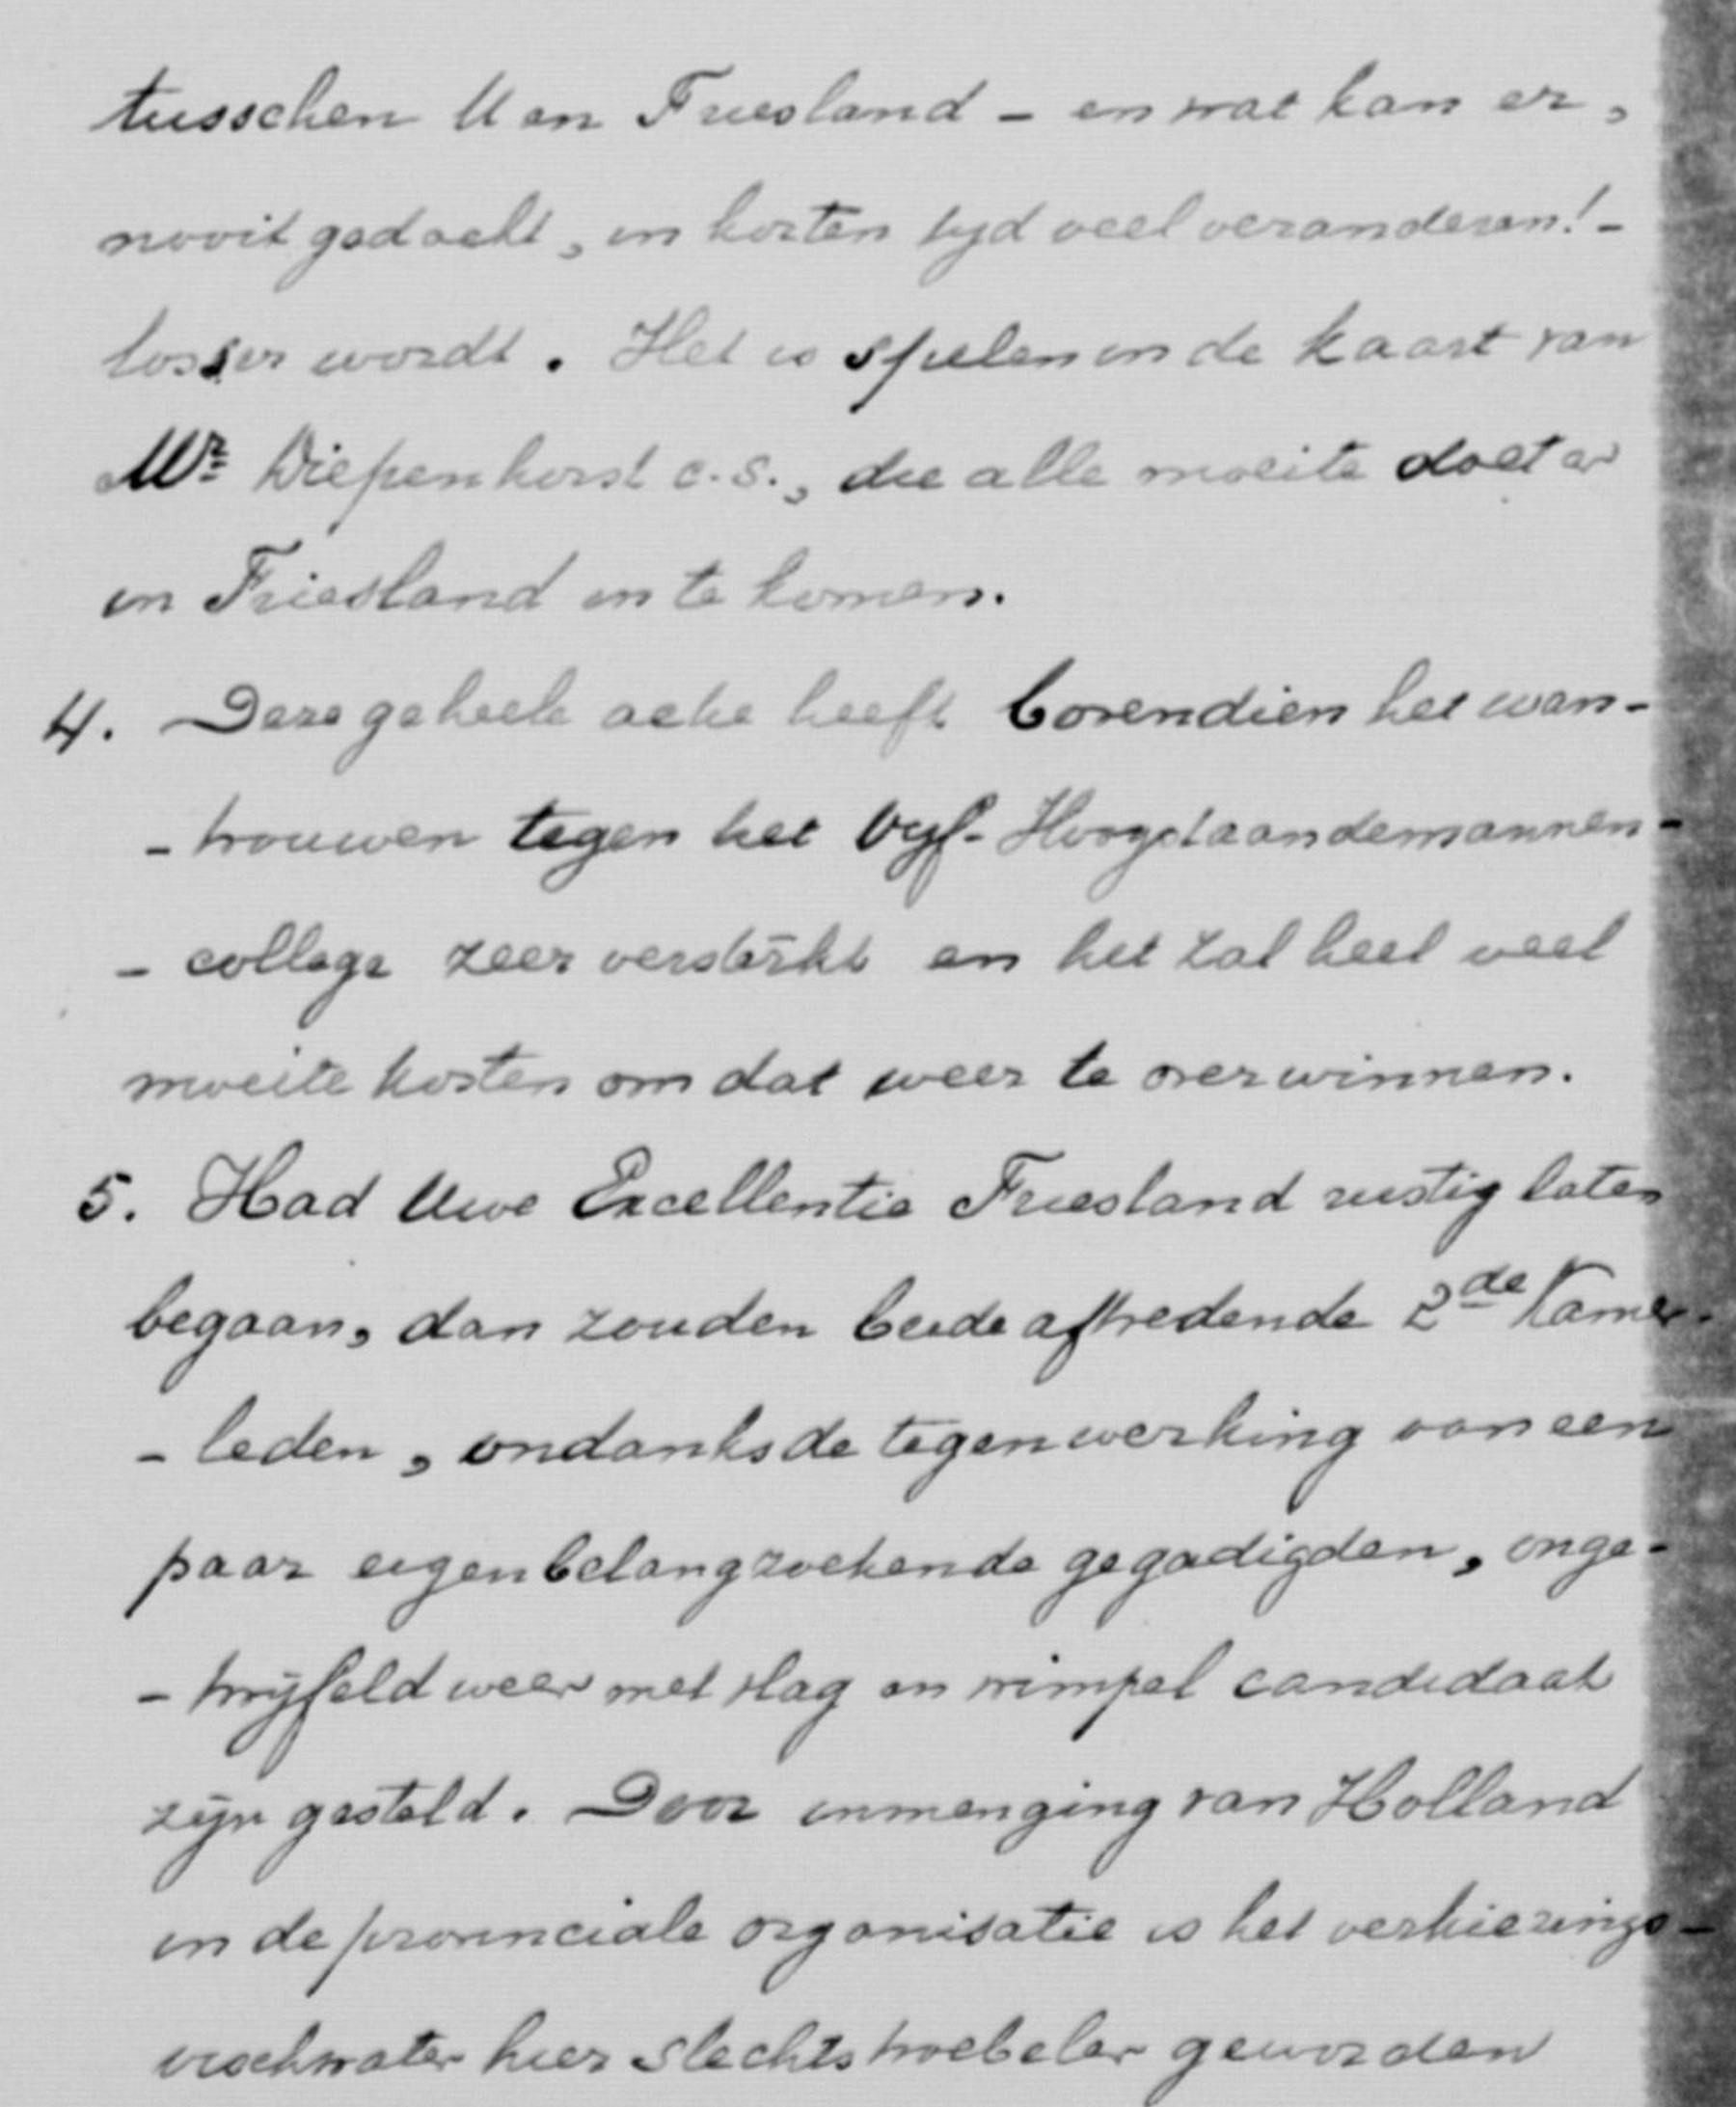 tusschen U en Friesland - en wat kan er,
nooit gedacht, in korten tyd veel veranderen! -
losser wordt. Het is spelen in de kaart van
Mr. Diepenhorst c.s., die alle moeite doet er
in Friesland in te komen.
4. Deze geheele actie heeft bovendien het wan-
- trouwen tegen het Vyf- Hoogstaandemannen-
- college zeer versterkt en het zal heel veel
moeite kosten om dat weer te overwinnen.
5. Had Uwe Excellentie Friesland rustig laten
begaan, dan zouden beide aftredende 2de Kamer-
- leden, ondanks de tegenwerking van een
paar eigenbelangzoekende gegadigden, onge-
- twijfeld weer met vlag en wimpel candidaat
zijn gesteld. Door inmenging van Holland
in de provinciale organisatie is het verkiezings-
vischwater hier slechts troebeler geworden